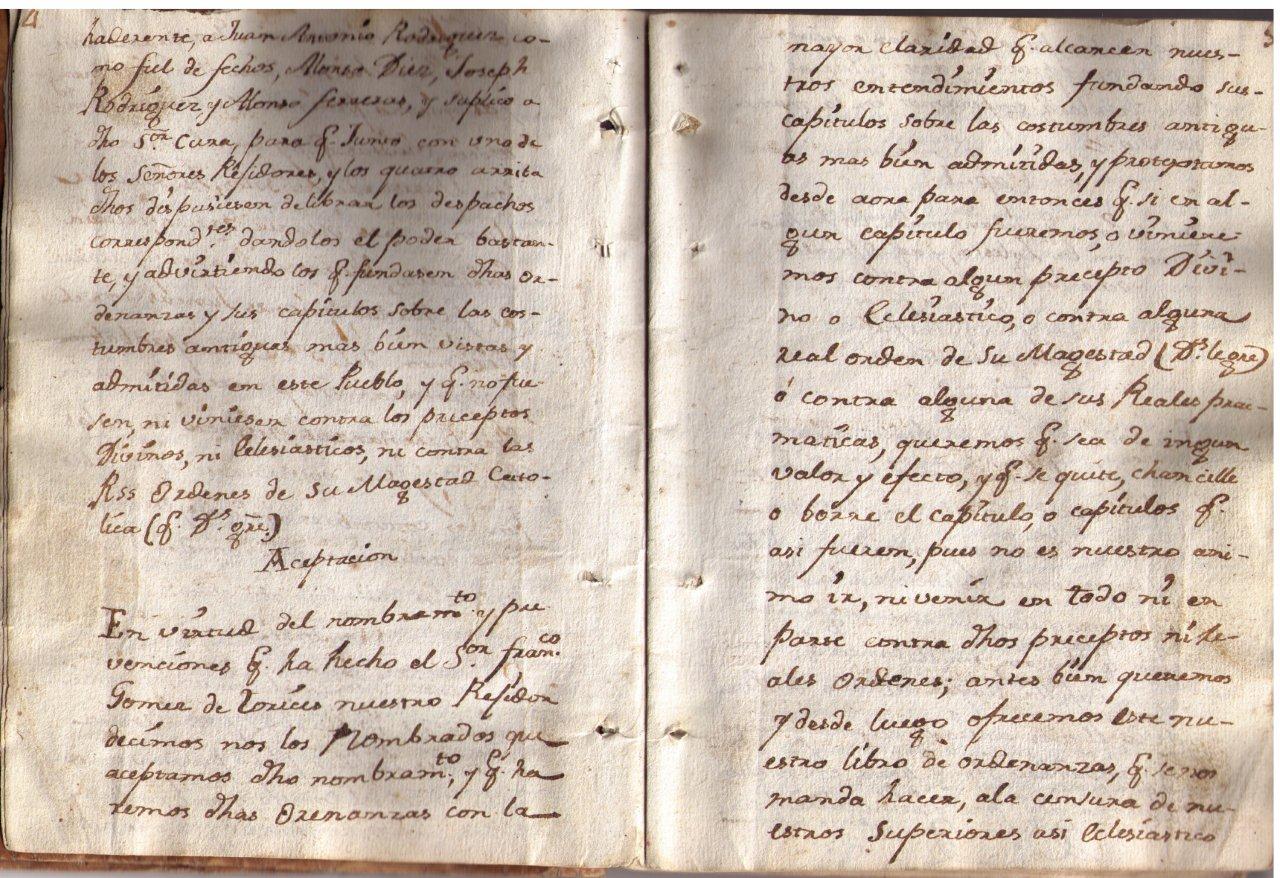 4
haderente, a Juan Antonio Rodriguez co-
mo fiel de fechos, Alonso Diez, Joseph
Rodriguez y Alonso ferreras, y suplico a
dho S.or Cura, para q.e Junto con uno de
los Señores Residores, y los quatro arriba
dhos dispusiesen de librar los despachos
correspond.tes dandolos el poder bastan-
te, y advirtiendo los q.e fundasen dhas or-
denanzas y sus capitulos sobre las cos-
tumbres antiguas mas bien vistas y
admitidas en este Pueblo, y q.e no fue-
sen, ni viniesen contra los preceptos
Divinos, ni Eclesiasticos, ni contra las
Rss Ordenes de Su Magestad Cato-
lica (q.e D.s gre.)
Aceptacion
En virtud del nombram.to y pre
venciones q.e ha hecho el S.or fran.co
Gomez de Torices nuestro Residor
decimos nos los Nombrados que
aceptamos dho nombram.to, y q.e ha
remos dhas Orenanzas con la
5
mayor claridad q.e alcancen nues-
tros entendimientos fundando sus-
capitulos sobre las costumbres antigu-
as mas bien admitidas, y protestamos
desde aora para entonces q.e si en al-
gun capitulo fueremos, o viniere-
mos contra algun precepto Divi-
no o Eclesiastico, o contra alguna
real orden de Su Magestad (D.s le gre)
ó contra alguna de sus Reales prac-
maticas, queremos q.e sea de ingun
valor y efecto, y q.e se quite, chancille
o borre el capitulo, o capitulos q.e
asi fueren, pues no es nuestro ani-
mo ir, ni venir en todo ni en
parte contra dhos preceptos ni Re-
ales Ordenes; antes bien queremos
y desde luego ofrecemos este nu-
estro libro de ordenanzas, q.e se nos
manda hacer, a la censura de nu-
estros Superiores asi Eclesiastico